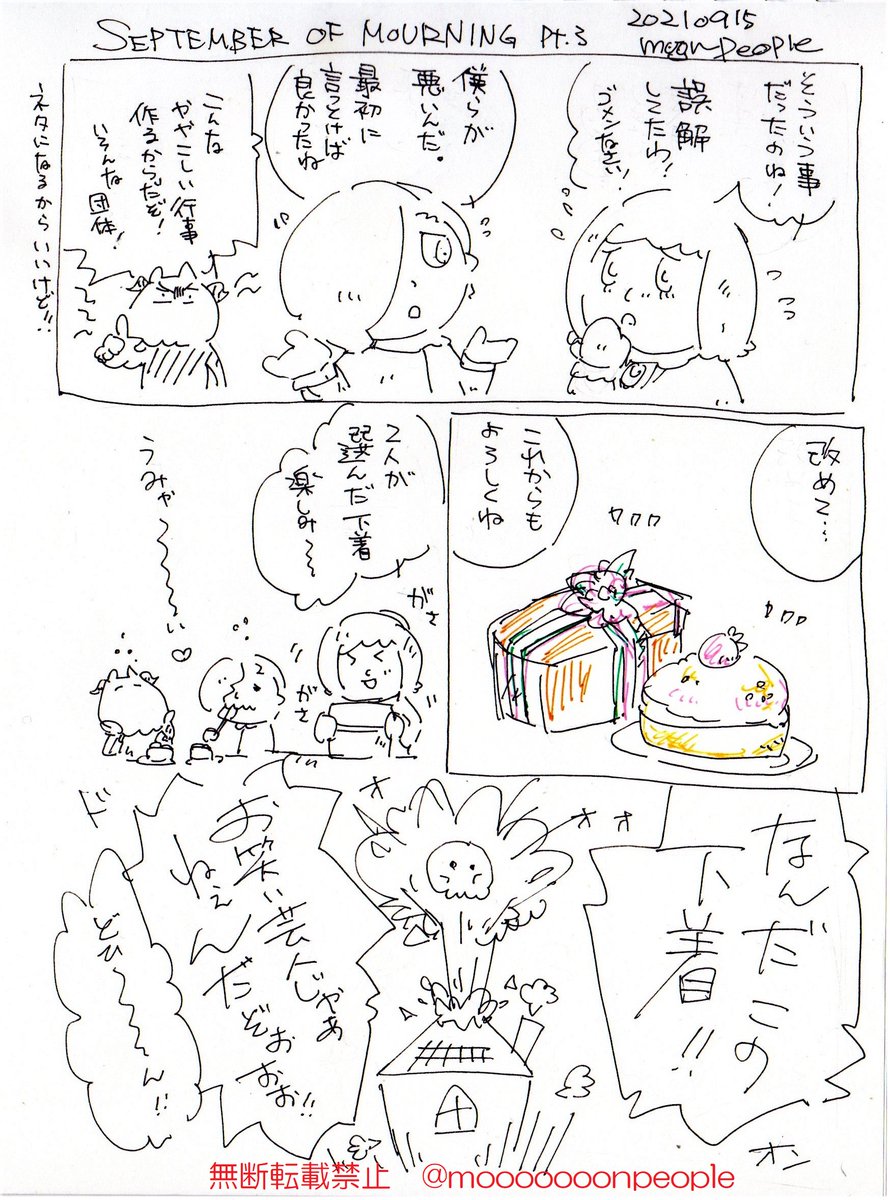 SEPTEMBER OF MOURNING Pt.3
20210915
moonpeople
そういう事
だったのね!
誤解
してたわ!
ゴメンなさい!
僕らが
悪いんだ。
最初に
言っとけば
良かったね
こんな
ややこしい行事
作るからだぞ!
いろんな団体!
ネタになるからいいけど!!
改めて…
これからも
よろしくね
ワワワ
ワワワ
2人が
選んだ下着
楽しみ〜〜
がさ
がさ
うみゃ〜〜〜い♡
なんだこの
下着!!
お笑い芸人じゃあ
ねぇんだぞぉぉぉ!!
どひ〜〜〜ん!!
ド
オ
オ
オ
オン
無断転載禁止 @mooooooonpeople